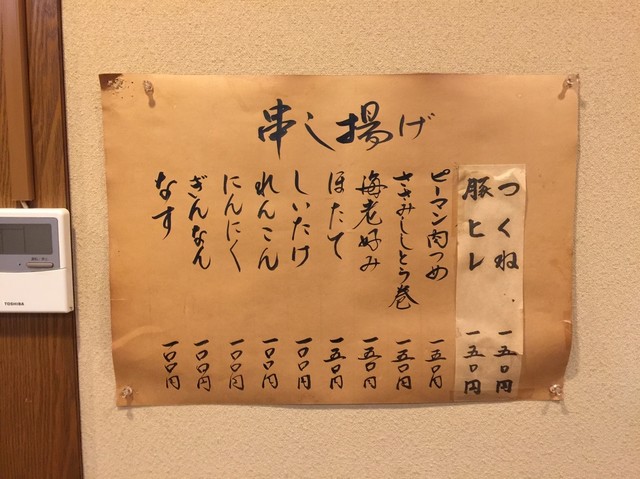 串し揚げ
つくね 一五〇円
豚ヒレ 一五〇円
ピーマン肉つめ 一五〇円
ささみししとう巻 一五〇円
海老好み 一五〇円
ほたて 一五〇円
しいたけ 一〇〇円
れんこん 一〇〇円
にんにく 一〇〇円
ぎんなん 一〇〇円
なす 一〇〇円
TOSHIBA